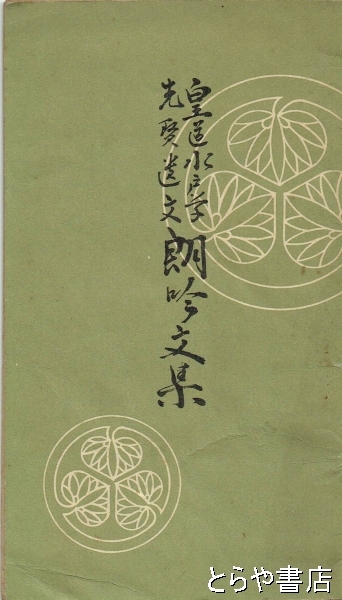 皇道水戸学
先賢遺文
朗吟文集
とらや書店